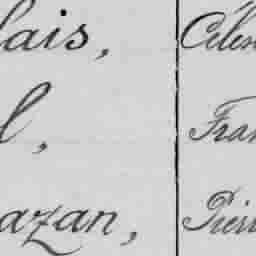 lais, Céles
l, Fran
azan, Pierr